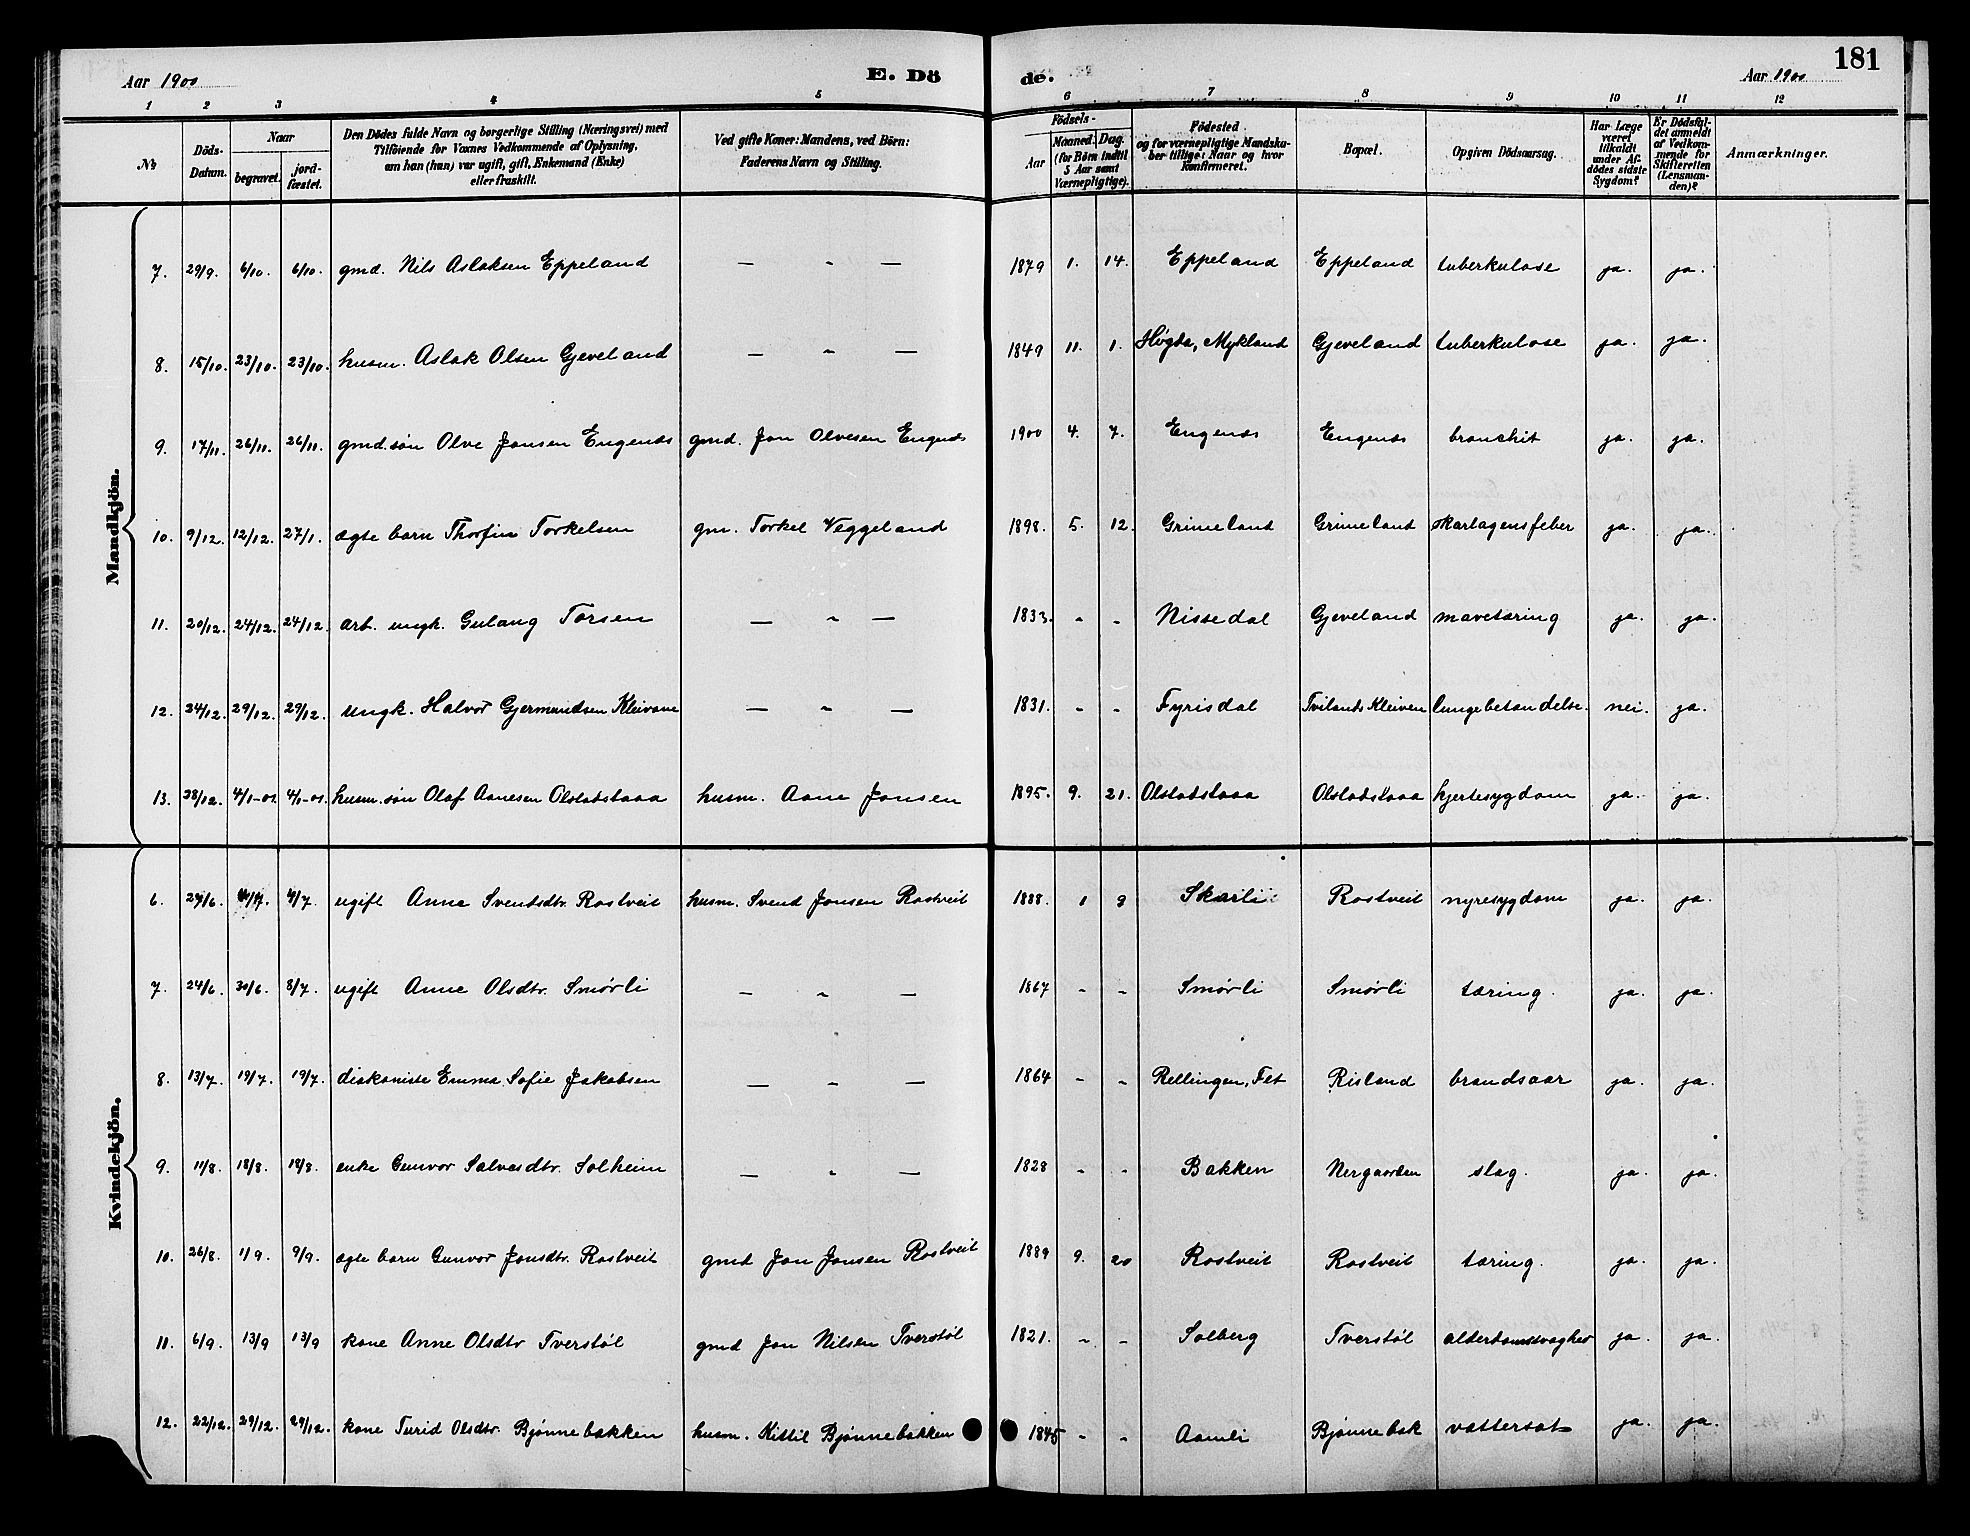 181
Aar 1900 E. Dö de. Aar 1900
1 2 3 4 5 6 7 8 9 10 11 12
№ Döds-Datum. Naar begravet. jordfæstet. Den Dödes fulde Navn og borgerlige Stilling (Næringsvei) med Tilföiende for Voxnes Vedkommende af Oplysning, om han (hun) var ugift, gift, Enkemand (Enke) eller fraskilt. Ved gifte Koner: Mandens, ved Börn: Faderens Navn og Stilling. Födsels- Aar Maaned. Dag. (for Börn indtil 5 Aar samt Værnepligtige). Födested og for værnepligtige Mandskaber tillige: Naar og hvor Konfirmeret. Bopæl. Opgiven Dödsaarsag. Har Læge været tilkaldt under Afdödes sidste Sygdom? Er Dödsfaldet anmeldt af Vedkommende for Skifteretten (Lensmanden)? Anmærkninger.
Mandkjön.
7. 29/9. 6/10. 6/10. gmd. Nils Aslaksen Eppeland — " — 1879 1. 14. Eppeland Eppeland tuberkulose ja. ja.
8. 15/10. 23/10. 23/10. husm. Aslak Olsen Gjeveland — " — 1849 11. 1. Høgda, Mykland Gjeveland tuberkulose ja. ja.
9. 17/11. 26/11. 26/11. gmd.søn Olve Jonsen Engenes gmd. Jon Olvesen Engenes 1900 4. 7. Engenes Engenes bronchit ja. ja.
10. 9/12. 12/12. 27/1. ægte barn Thorfin Torkelsen gm. Torkel Veggeland 1898. 5. 12. Grimeland Grimeland skarlagensfeber ja. ja.
11. 20/12. 24/12. 24/12. arb. ungk. Gulang Torsen — " — 1833. - - Nissedal Gjeveland mavetæring ja. ja.
12. 24/12. 29/12. 29/12. ungk. Halvor Gjermundsen Kleivane — " — 1831. - - Fyrisdal Tvilands Kleiven lungebetændelse. nei. ja.
13. 28/12. 4/1-01. 4/1-01. husm. søn Olaf Aanesen Olstadstaaa husm. Aane Jonsen 1895. 9. 21. Olstadstaaa Olstadstaaa hjertesygdom ja. ja.
Kvindekjön.
6. 29/6. 4/7. 4/7. ugift Anne Svendsdtr. Rostveit husm. Svend Jonsen Rostveit 1888. 1 9 Skarli Rostveit nyresygdom ja. ja.
7. 24/6. 30/6. 8/7. ugift Anne Olsdtr. Smørli — " — 1867 - - Smørli Smørli tæring. ja. ja.
8. 13/7. 19/7. 19/7. diakonisse Emma Sofie Jakobsen — " — 1864 - - Rellingen, Fet Risland brandsaar ja. ja.
9. 11/8. 18/8. 18/8. enke Gunvor Salvesdtr. Solheim — " — 1828 - - Bakken Nergaarden slag. ja. ja.
10. 26/8. 1/9. 9/9. ægte barn Gunvor Jonsdtr. Rostveit gmd Jon Jonsen Rostveit 1889 9. 20 Rostveit Rostveit tæring. ja. ja.
11. 6/9. 13/9 13/9 kone Anne Olsdtr Tverstøl gmd Jon Nilsen Tverstøl 1821. - - Solberg Tverstøl alderdomssvaghed ja. ja.
12. 22/12. 29/12. 29/12. kone Turid Olsdtr. Bjønnebakken husm. Kittil Bjønnebakken 1845 - - Aamli Bjønnebak vattersot ja. ja.